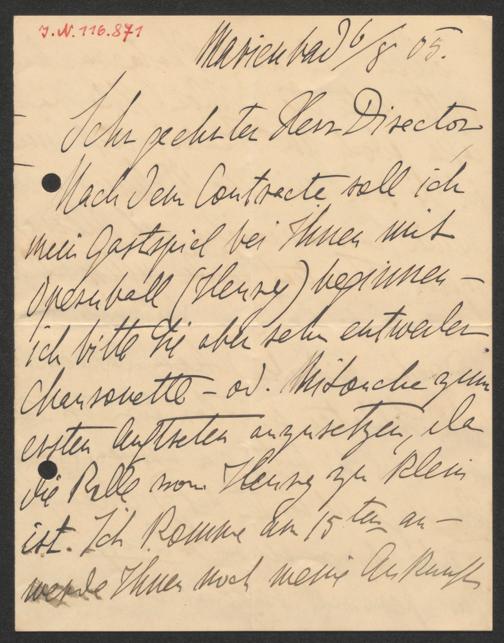 J.N. 116.871
Marienbad 6/8 05.
Sehr geehrter Herr Director
Nach dem Contracte soll ich
mein Gastspiel bei Ihnen mit
Opernball (Henry) beginnen –
ich bitte Sie aber sehr entweder
Chansonette – od. zum
ersten Auftreten anzusetzen, da
die Rolle vom Henry zu klein
ist. Ich komme am 15ten an –
werde Ihnen noch meine Ankunft